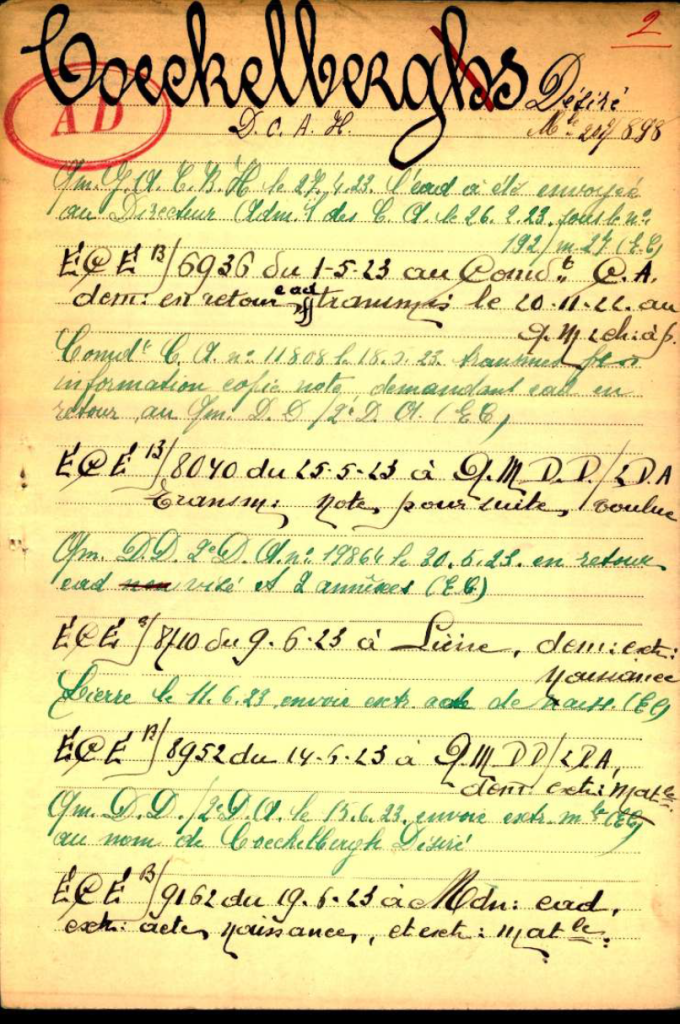 2
Coeckelberghs Désiré
AD
D. C. A. H. Mle 207/898
Qm. G. A. C. B. H le 27.4.23. l'ead a été envoyée
au Directeur Adm.f des C. A. le 26.2.23 sous le no
192/m-27 (EC)
ÉCÉ B/6936 du 1-5-23 au Comdt C. A.
dem: en retour ead transmis le 20-11-22 au
Comdt C. A. no 11808 le 18.5.23. transmet
information copie note, demandant ead en
retour au Qm. D. D /2e D. A. (EC)
ÉCÉ B/8040 du 25-5-23 à Q.M D.D./2D.A
transm: note, pour suite, voulue
Qm. D.D. 2eD. A. no 19864 le 30.5.23. en retour
ead visé et 2 annexes (E.C)
ÉCÉ B/8710 du 9-6-23 à Lierre, dem: ext:
naissance
Lierre le 11.6.23 envoie extr. acte de naiss. (EC)
ÉCÉ B/8952 du 14-6-23 à Q.M D D/2DA,
dem: extr: Matle.
Qm. D.D./2eD.A. le 15.6.23. envoie extr. mle (EC)
au nom de Coeckelbergh Désiré
ÉCÉ B/9162 du 19-6-23 à Mdn: ead,
extr: acte, naissance, et extr: matle.